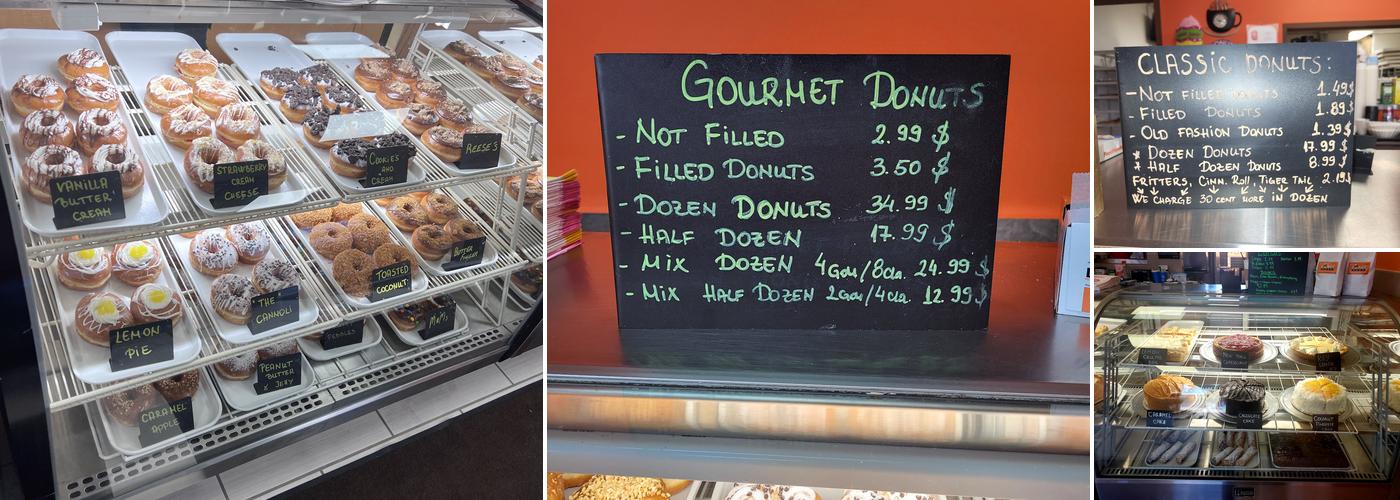 VANILLA
BUTTER
CREAM
STRAWBERRY
CREAM
CHEESE
COOKIES
AND
CREAM
REESE'S
LEMON
PIE
"THE
CANNOLI
TOASTED
COCONUT
BUTTER
CARAMEL
APPLE
PEANUT
BUTTER
& JELLY
PEBBLES
M&M's
GOURMET DONUTS
- NOT FILLED 2.99 $
- FILLED DONUTS 3.50 $
- DOZEN DONUTS 34.99 $
- HALF DOZEN 17.99 $
- MIX DOZEN 4Gou/8Cla. 24.99 $
- MIX HALF DOZEN 2Gou/4Cla. 12.99 $
CLASSIC DONUTS:
- NOT FILLED DONUTS 1.49$
- FILLED DONUTS 1.89$
- OLD FASHION DONUTS 1.39$
* DOZEN DONUTS 17.99$
* HALF DOZEN DONUTS 8.99$
FRITTERS, CINN. ROLL, TIGER TAIL 2.19$
WE CHARGE 30 CENT MORE IN DOZEN
CARAMEL
CAKE
CHOCOLATE
CAKE
COCONUT